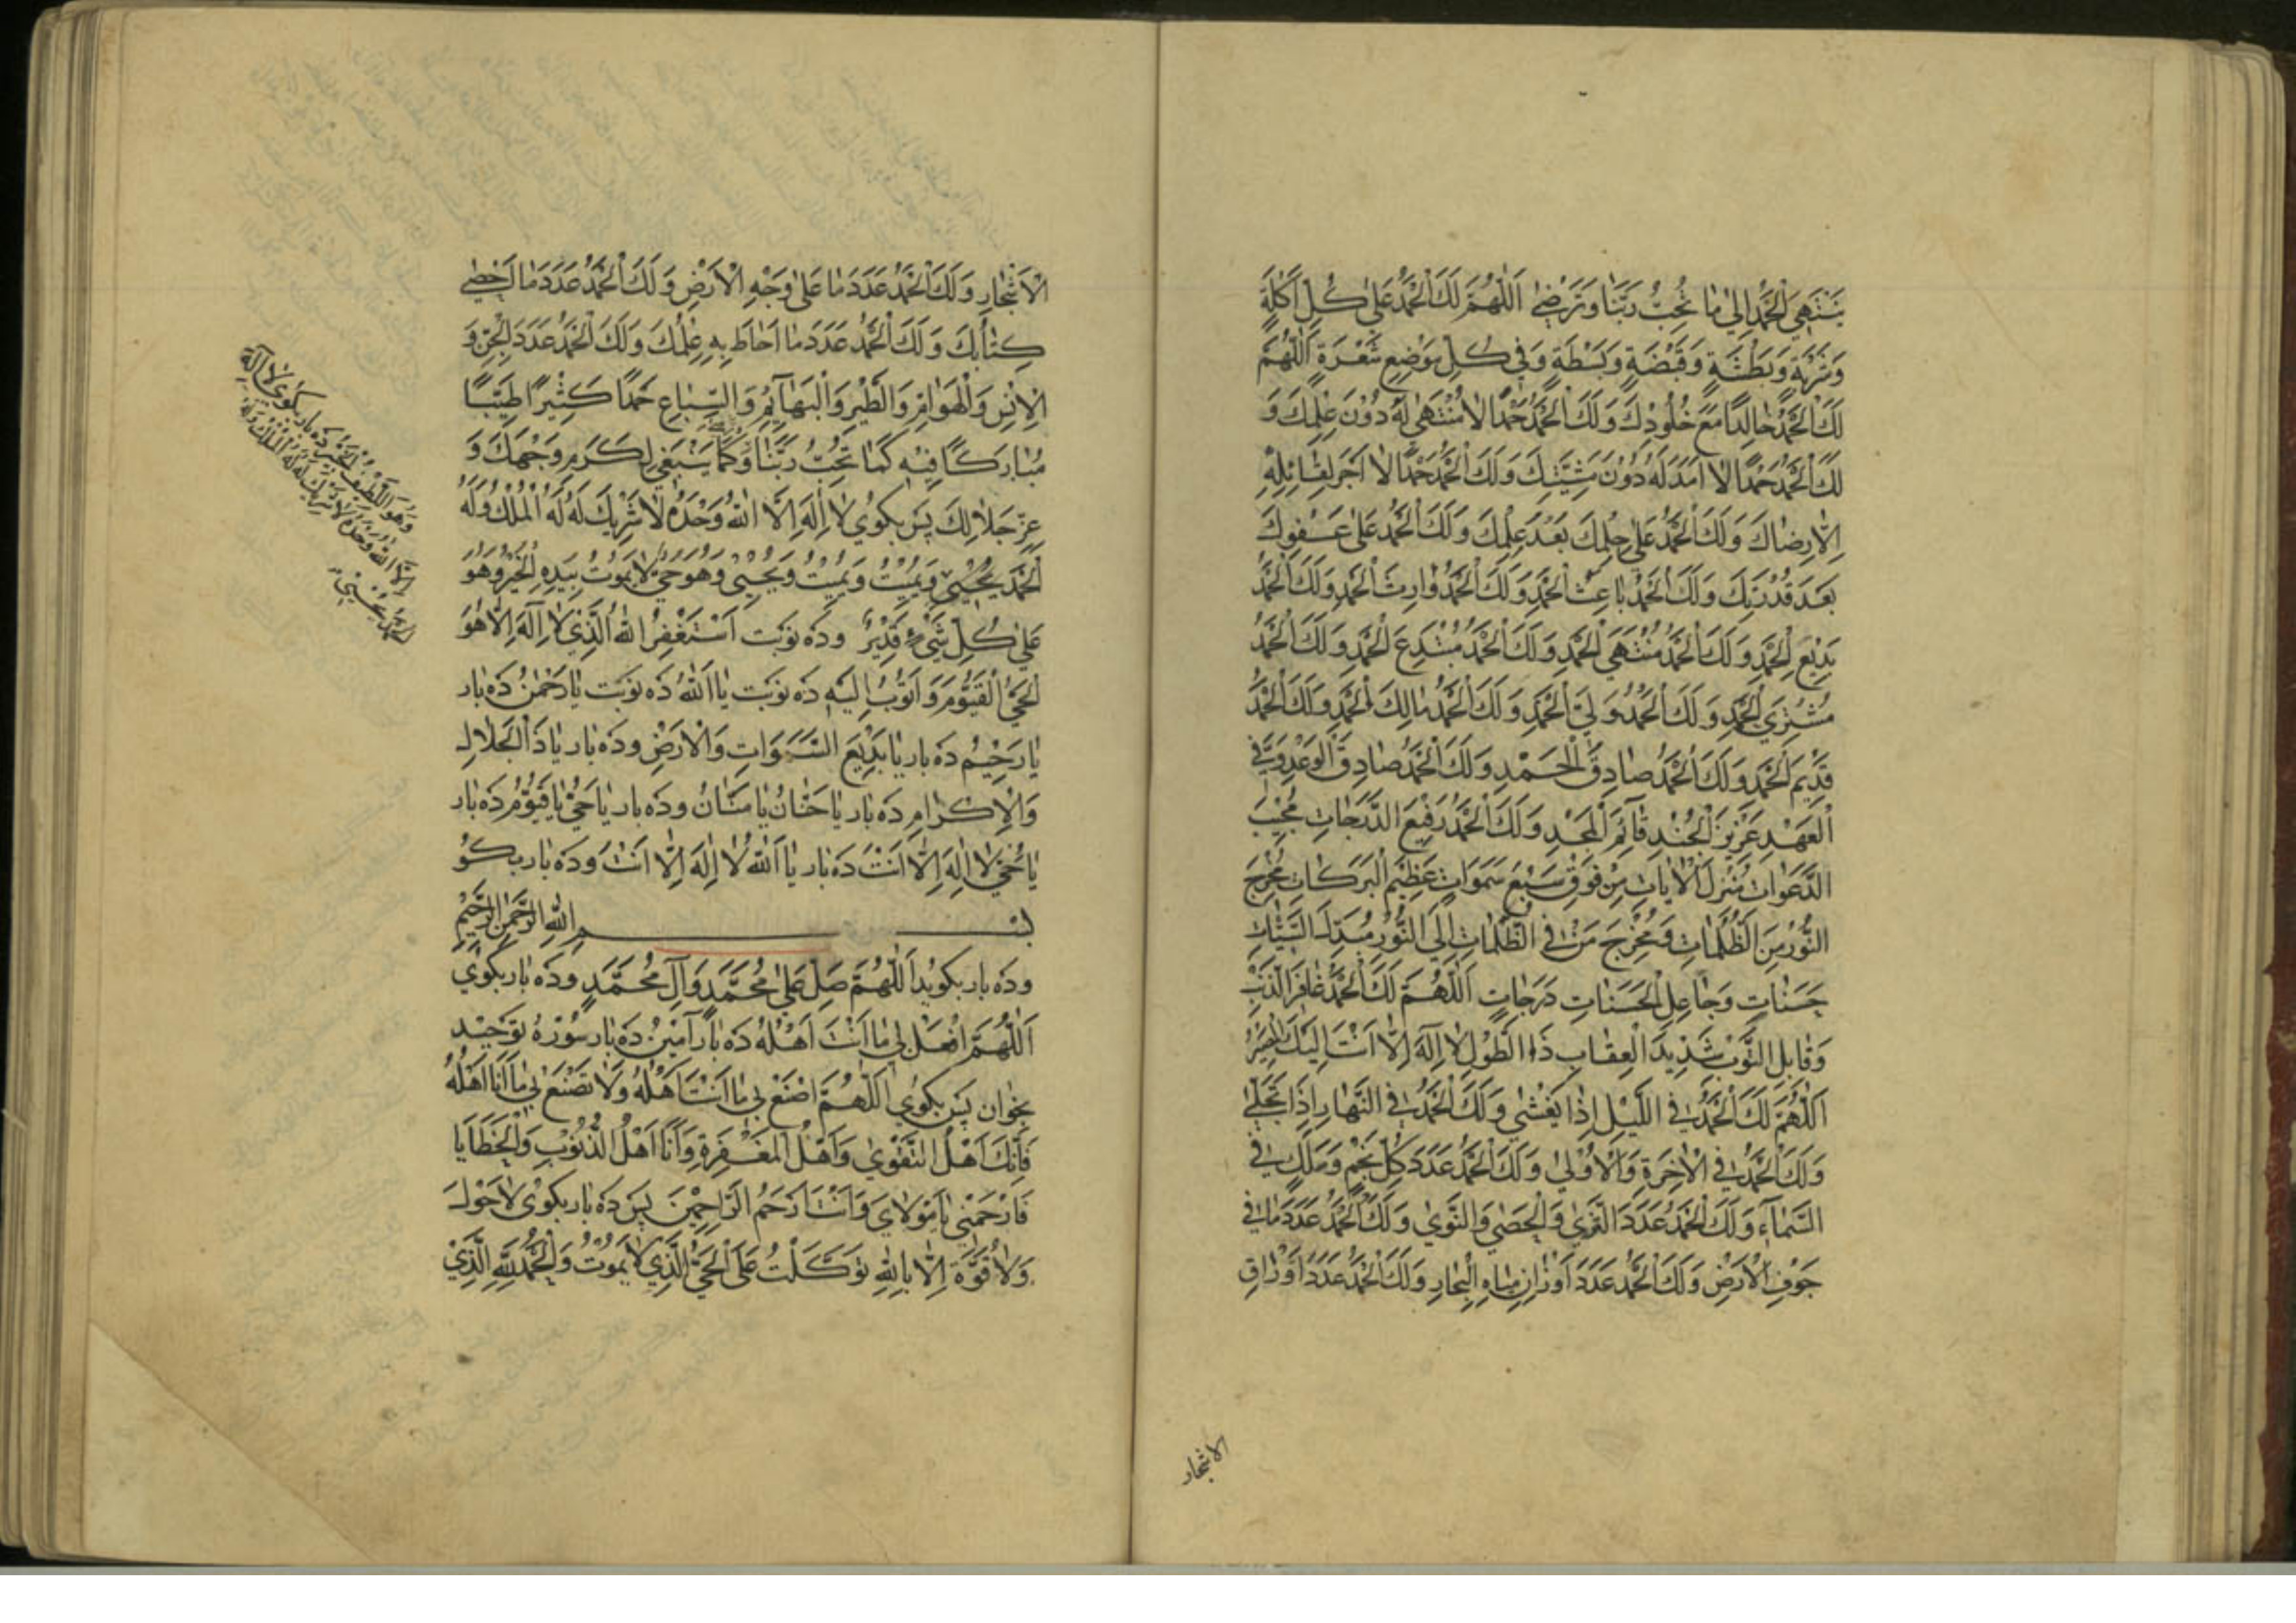 يَنْتَهِيَ الْحَمْدُ اِلىٰ ما تُحِبُّ رَبَّنا وَتَرْضىٰ اَللّٰهُمَّ لَكَ الْحَمْدُ عَلىٰ كُلِّ اَكْلَةٍ
وَشَرْبَةٍ وَبَطْشَةٍ وَقَبْضَةٍ وَبَسْطَةٍ وَفي كُلِّ مَوْضِعِ شَعْرَةٍ اَللّٰهُمَّ
لَكَ الْحَمْدُ خالِدًا مَعَ خُلُودِكَ وَلَكَ الْحَمْدُ حَمْدًا لا مُنْتَهىٰ لَهُ دُوْنَ عِلْمِكَ وَ
لَكَ الْحَمْدُ حَمْدًا لا اَمَدَ لَهُ دُوْنَ مَشِيَّتِكَ وَلَكَ الْحَمْدُ حَمْدًا لا اَجْرَ لِقائِلِهِ
اِلّا رِضاكَ وَلَكَ الْحَمْدُ عَلىٰ حِلْمِكَ بَعْدَ عِلْمِكَ وَلَكَ الْحَمْدُ عَلىٰ عَفْوِكَ
بَعْدَ قُدْرَتِكَ وَلَكَ الْحَمْدُ باعِثَ الْحَمْدِ وَلَكَ الْحَمْدُ وارِثَ الْحَمْدِ وَلَكَ الْحَمْدُ
بَدِيْعَ الْحَمْدِ وَلَكَ الْحَمْدُ مُنْتَهَى الْحَمْدِ وَلَكَ الْحَمْدُ مُبْتَدِعَ الْحَمْدِ وَلَكَ الْحَمْدُ
مُشْتَرِيَ الْحَمْدِ وَلَكَ الْحَمْدُ وَلِيَّ الْحَمْدِ وَلَكَ الْحَمْدُ مالِكَ الْحَمْدِ وَلَكَ الْحَمْدُ
قَدِيْمَ الْحَمْدِ وَلَكَ الْحَمْدُ صادِقَ الْحَمْدِ وَلَكَ الْحَمْدُ صادِقَ الْوَعْدِ وَفِيَّ
الْعَهْدِ عَزِيْزَ الْجُنْدِ قائِمَ الْمَجْدِ وَلَكَ الْحَمْدُ رَفِيْعَ الدَّرَجاتِ مُجِيْبَ
الدَّعَواتِ مُنْزِلَ الْاٰياتِ مِنْ فَوْقِ سَبْعِ سَمَواتٍ عَظِيْمَ الْبَرَكاتِ مُخْرِجَ
النُّوْرِ مِنَ الظُّلُماتِ وَمُخْرِجَ مَنْ في الظُّلُماتِ اِلَى النُّوْرِ مُبَدِّلَ السَّيِّئاتِ
حَسَناتٍ وَجاعِلَ الْحَسَناتِ دَرَجاتٍ اَللّٰهُمَّ لَكَ الْحَمْدُ غافِرَ الذَّنْبِ
وَقابِلَ التَّوْبِ شَدِيْدَ الْعِقابِ ذَا الطَّوْلِ لا اِلٰهَ اِلّا اَنْتَ اِلَيْكَ الْمَصِيْرُ
اَللّٰهُمَّ لَكَ الْحَمْدُ في اللَّيْلِ اِذا يَغْشىٰ وَلَكَ الْحَمْدُ في النَّهارِ اِذا تَجَلّىٰ
وَلَكَ الْحَمْدُ في الْاٰخِرَةِ وَالْاُوْلىٰ وَلَكَ الْحَمْدُ عَدَدَ كُلِّ نَجْمٍ وَمَلَكٍ في
السَّماءِ وَلَكَ الْحَمْدُ عَدَدَ الثَّرىٰ وَالْحَصىٰ وَالنَّوىٰ وَلَكَ الْحَمْدُ عَدَدَ ما في
جَوْفِ الْاَرْضِ وَلَكَ الْحَمْدُ عَدَدَ اَوْزانِ مِياهِ الْبِحارِ وَلَكَ الْحَمْدُ عَدَدَ اَوْراقِ
الاشجار
الْاَشْجارِ وَلَكَ الْحَمْدُ عَدَدَ ما عَلىٰ وَجْهِ الْاَرْضِ وَلَكَ الْحَمْدُ عَدَدَ ما اَحْصىٰ
كِتابُكَ وَلَكَ الْحَمْدُ عَدَدَ ما اَحاطَ بِهِ عِلْمُكَ وَلَكَ الْحَمْدُ عَدَدَ الْجِنِّ وَ
الْاِنْسِ وَالْهَوامِّ وَالطَّيْرِ وَالْبَهائِمِ وَالسِّباعِ حَمْدًا كَثِيْرًا طَيِّبًا
مُبارَكًا فِيْهِ كَما تُحِبُّ رَبَّنا وَكَما يَنْبَغي لِكَرَمِ وَجْهِكَ وَ
عِزِّ جَلالِكَ پس بكوي لا اِلٰهَ اِلَّا اللّٰهُ وَحْدَهُ لا شَرِيْكَ لَهُ لَهُ الْمُلْكُ وَلَهُ
الْحَمْدُ يُحْيِيْ وَيُمِيْتُ وَيُمِيْتُ وَيُحْيِيْ وَهُوَ حَيٌّ لا يَمُوتُ بِيَدِهِ الْخَيْرُ وَهُوَ
عَلىٰ كُلِّ شَيْءٍ قَدِيْرٌ وده نوبت اَسْتَغْفِرُ اللّٰهَ الَّذِي لا اِلٰهَ اِلّا هُوَ
الْحَيُّ الْقَيُّوْمُ وَاَتُوْبُ اِلَيْهِ ده نوبت يا اَللّٰهُ ده نوبت يا رَحْمٰنُ ده بار
يا رَحِيْمُ ده بار يا بَدِيْعَ السَّمَواتِ وَالْاَرْضِ وده بار يا ذَا الْجَلالِ
وَالْاِكْرامِ ده بار يا حَنّانُ يا مَنّانُ وده بار يا حَيُّ يا قَيُّوْمُ ده بار
يا حَيُّ لا اِلٰهَ اِلّا اَنْتَ ده بار يا اَللّٰهُ لا اِلٰهَ اِلّا اَنْتَ وده بار بكو
بسم اللّٰه الرحمن الرحيم
وده بار بكويد اَللّٰهُمَّ صَلِّ عَلىٰ مُحَمَّدٍ وَآلِ مُحَمَّدٍ وده بار بكوي
اَللّٰهُمَّ افْعَلْ بي ما اَنْتَ اَهْلُهُ ده بار آمين ده بار سورة توحيد
بخوان پس بكوي اَللّٰهُمَّ اصْنَعْ بي ما اَنْتَ اَهْلُهُ وَلا تَصْنَعْ بي ما اَنَا اَهْلُهُ
فَاِنَّكَ اَهْلُ التَّقْوىٰ وَاَهْلُ الْمَغْفِرَةِ وَاَنَا اَهْلُ الذُّنُوْبِ وَالْخَطايا
فَارْحَمْني يا مَوْلايَ وَاَنْتَ اَرْحَمُ الرّاحِمِيْنَ پس ده بار بكوي لا حَوْلَ
وَلا قُوَّةَ اِلّا بِاللّٰهِ تَوَكَّلْتُ عَلَى الْحَيِّ الَّذِي لا يَمُوْتُ وَالْحَمْدُ لِلّٰهِ الَّذِيْ
وَهُوَ اللَّطِيْفُ الْخَبِيْرُ ده بار بكوي لا اِلٰهَ
اِلَّا اللّٰهُ وَحْدَهُ لا شَرِيْكَ لَهُ لَهُ الْمُلْكُ وَلَهُ
الحمد يحيي